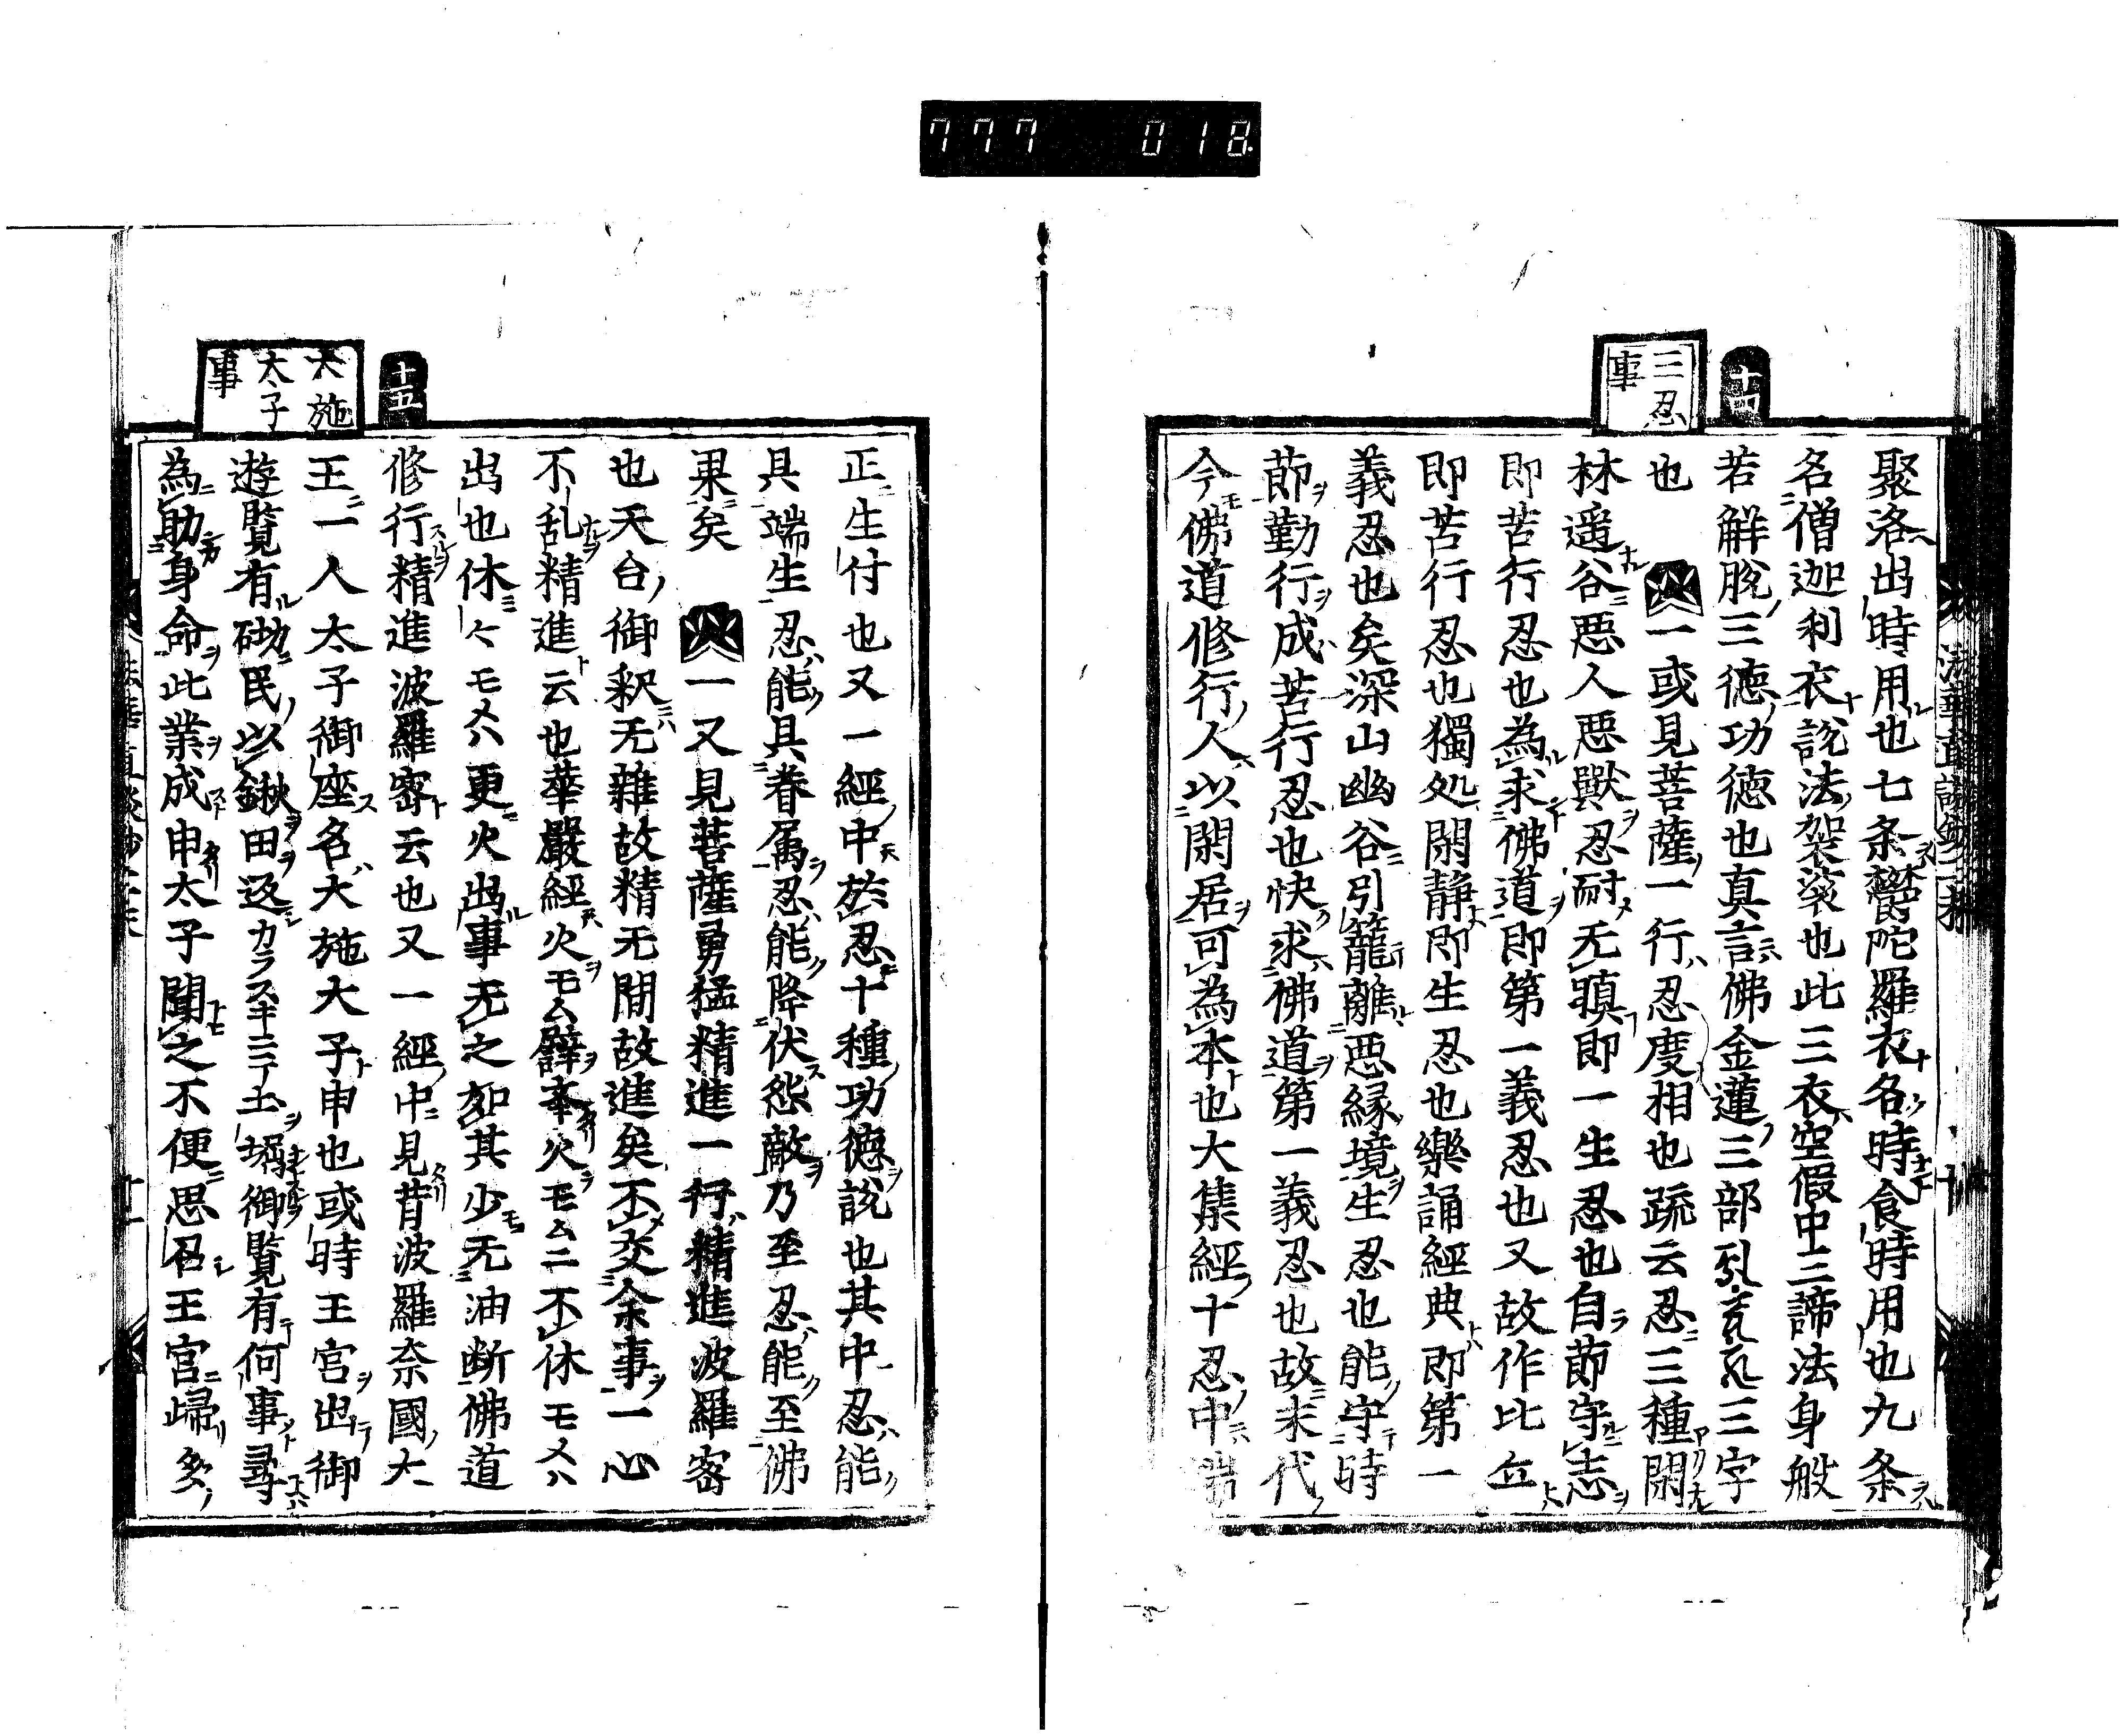 777 018
十四
三忍
事
聚洛出時用也七条鬱陀羅衣名時食時用也九条
名僧迦利衣説法架裟也此三衣空假中三諦法身般
若解脱三徳功徳也真言佛金蓮三部 三字
也 一或見菩薩一行忍度相也疏云忍三種閑
林遥谷悪人悪獸忍耐无瞋即一生忍也自節守志
即苦行忍也為求佛道即第一義忍也又故作比丘
即苦行忍也獨処閑静即生忍也樂誦經典即第一
義忍也矣深山幽谷引籠離悪縁境生忍也能守時
節勤行成苦行忍也快求佛道第一義忍也故末代
今佛道修行人以閑居可為本也大集經十忍中
十五
大施
太子
事
正生付也又一經中於忍十種功徳説也其中忍能
具端生忍能具眷属忍能降伏怨敵乃至忍能至佛
果矣 一又見菩薩勇猛精進一行精進波羅密
也天台御釈无雜故精无間故進矣不交余事一心
不乱精進云也華嚴經火モム辟本火モム二不休モメハ
出也休々モメハ更火出事无之如其少无油断佛道
修行精進波羅密云也又一經中見昔波羅奈國大
王一人太子御座名大施大子申也或時王宮出御
遊覧有砌民以鍬田返カラスキニテ土堀御覧有何事尋
為助身命此業成申太子聞之不便思召王宮歸